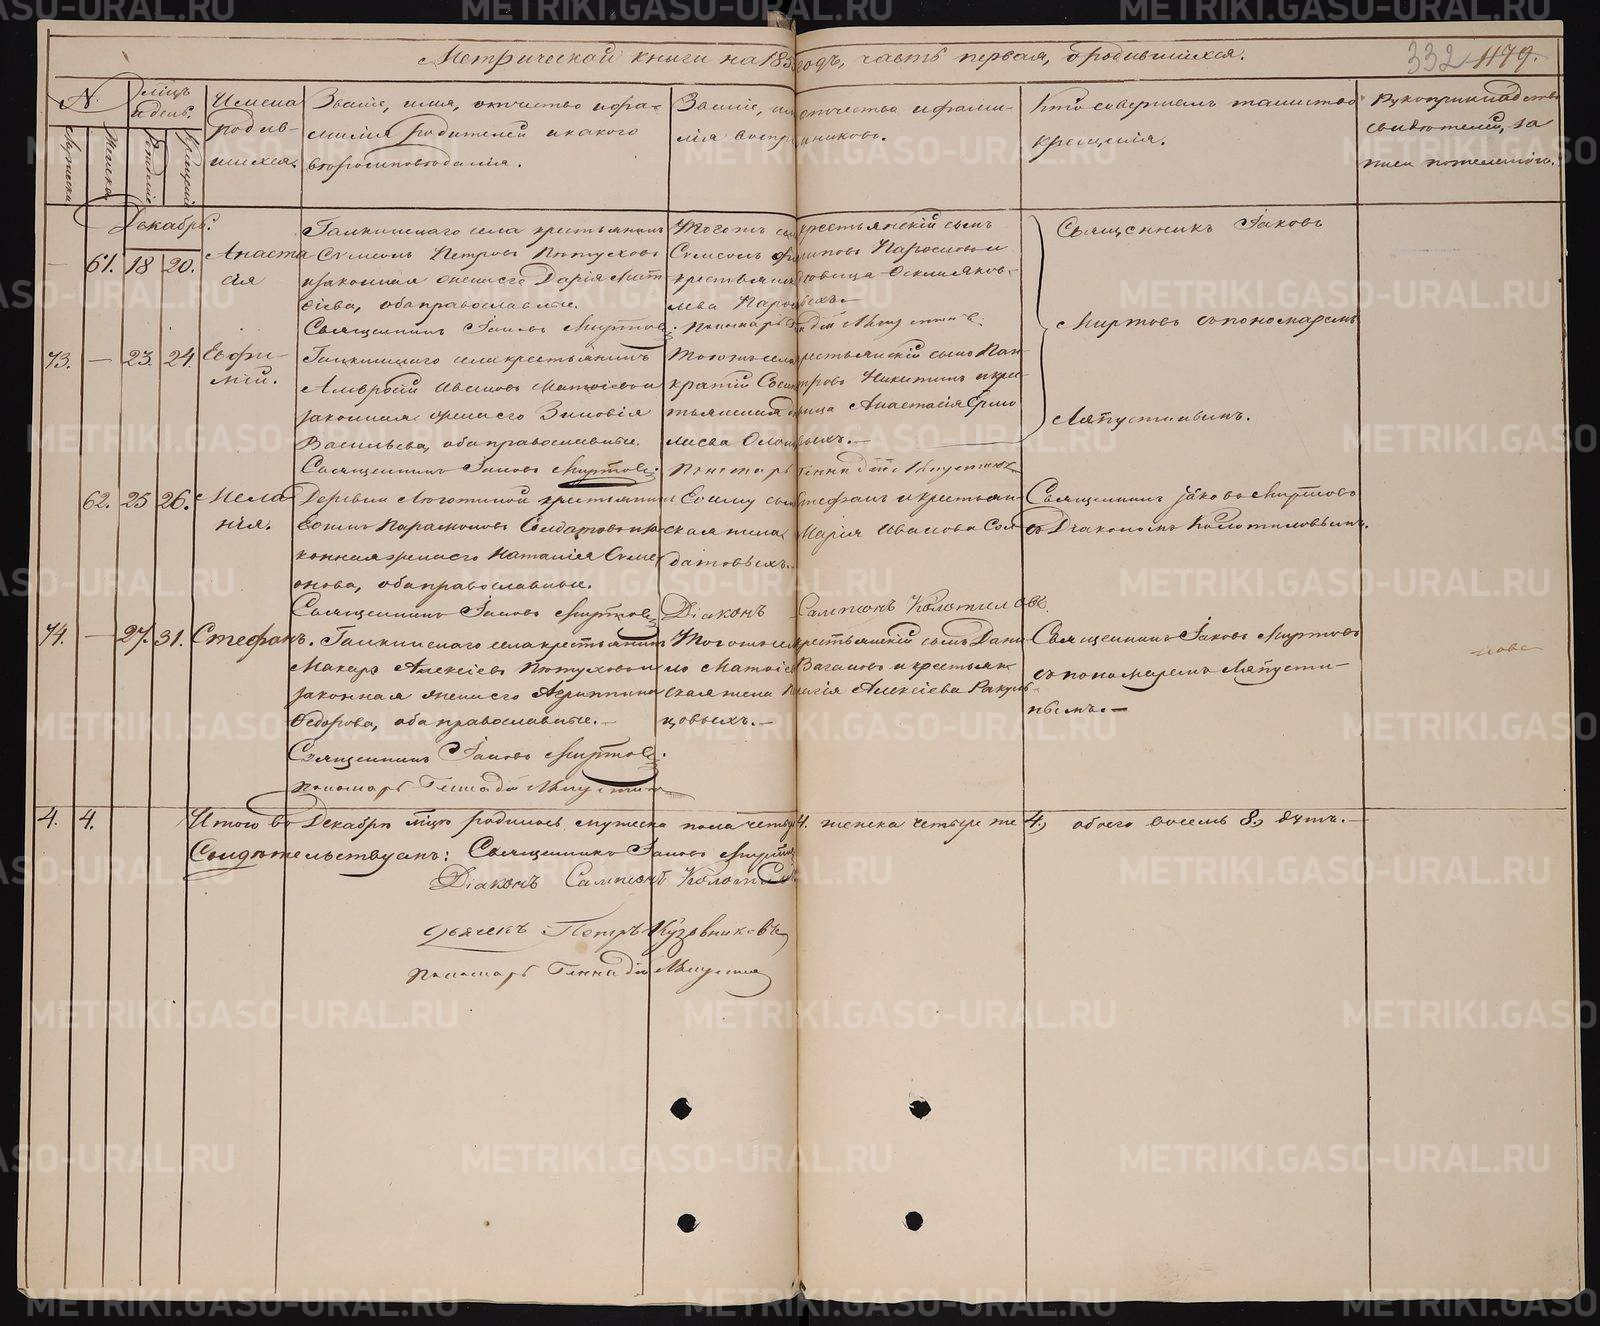 Метрической книги на 185 годъ, часть первая, о родившихся.
332 1179.
N.
Мѣсяцъ и день.
Имена родив-
шихся.
Званіе, имя, отчество и фа-
милія родителей и какого
вѣроисповѣданія.
Званіе, им отчество и фами-
лія воспр мниковъ.
Кто совершалъ таинство
крещенія.
Рукоприкладство
свидѣтелей, за
писи по желанію.
Мужеска
Женска
Рожденіе
Крещеніе
Декабрь.
— 61. 18 20.
Анаста
сія
Галкинскаго села крестьянинъ
Сумеонъ Петровъ Пѣтуховъ и
законная жена его Дарія Мат
ѳіева, оба православные.
Священникъ Іаковъ Миртовъ.
Тогожъ се крестьянскій сынъ
Сумеонъ Фи липовъ
крестьянск дѣвица
Пономарь
Священникъ Іаковъ
Миртовъ съ пономаремъ
Ляпустинымъ.
73. — 23. 24.
Евфи-
мій.
Галкинскаго села крестьянинъ
Амвросій Ивановъ
законная жена его Зиновія
Васильева, оба православные.
Священникъ Іаковъ Миртовъ.
Тогожъ села крестьянскій сынъ Пан-
кратій Никитинъ и крес
тьянская дѣвица Анастасія Ермо
лаева
Пономарь Геннадій Ляпустинъ
62. 25 26.
Мела
нія.
Деревни крестьянинъ
Парамоновъ Солдатовъ и за
конная жена его Наталія Сумѣ
онова, оба православные.
Священникъ Іаковъ Миртовъ
сы Стефанъ и крестьян-
ская жена Марія Иванова Сол
датовыхъ.
Діаконъ Сампсонъ Колотиловъ.
Священникъ Іаковъ Миртовъ
съ Діакономъ Колотиловымъ.
74. — 27. 31.
Стефанъ.
Галкинскаго села крестьянинъ
Макаръ Алексіевъ Пѣтуховъ и
законная жена его Агриппина
Ѳедорова, оба православные. —
Священникъ Іаковъ Миртовъ.
Пономарь Геннадій Ляпустинъ
Тогожъ села крестьянскій сынъ Дани
ло Матѳіев Вагановъ и крестьян
ская жена Алексіева
цовыхъ. —
Священникъ Іаковъ Миртовъ
съ пономаремъ Ляпусти-
нымъ. —
4. 4.
Итого въ Декабрѣ мцѣ родилось мужеска пола четыр 4. женска четыре же 4, обоего восемь 8, душъ. —
Свидѣтельствуемъ: Священникъ Іаковъ Миртовъ
Діаконъ Сампсонъ Колотиловъ
Дьячекъ Петръ Кузовниковъ
Пономарь Геннадій Ляпустинъ
METRIKI.GASO-URAL.RU